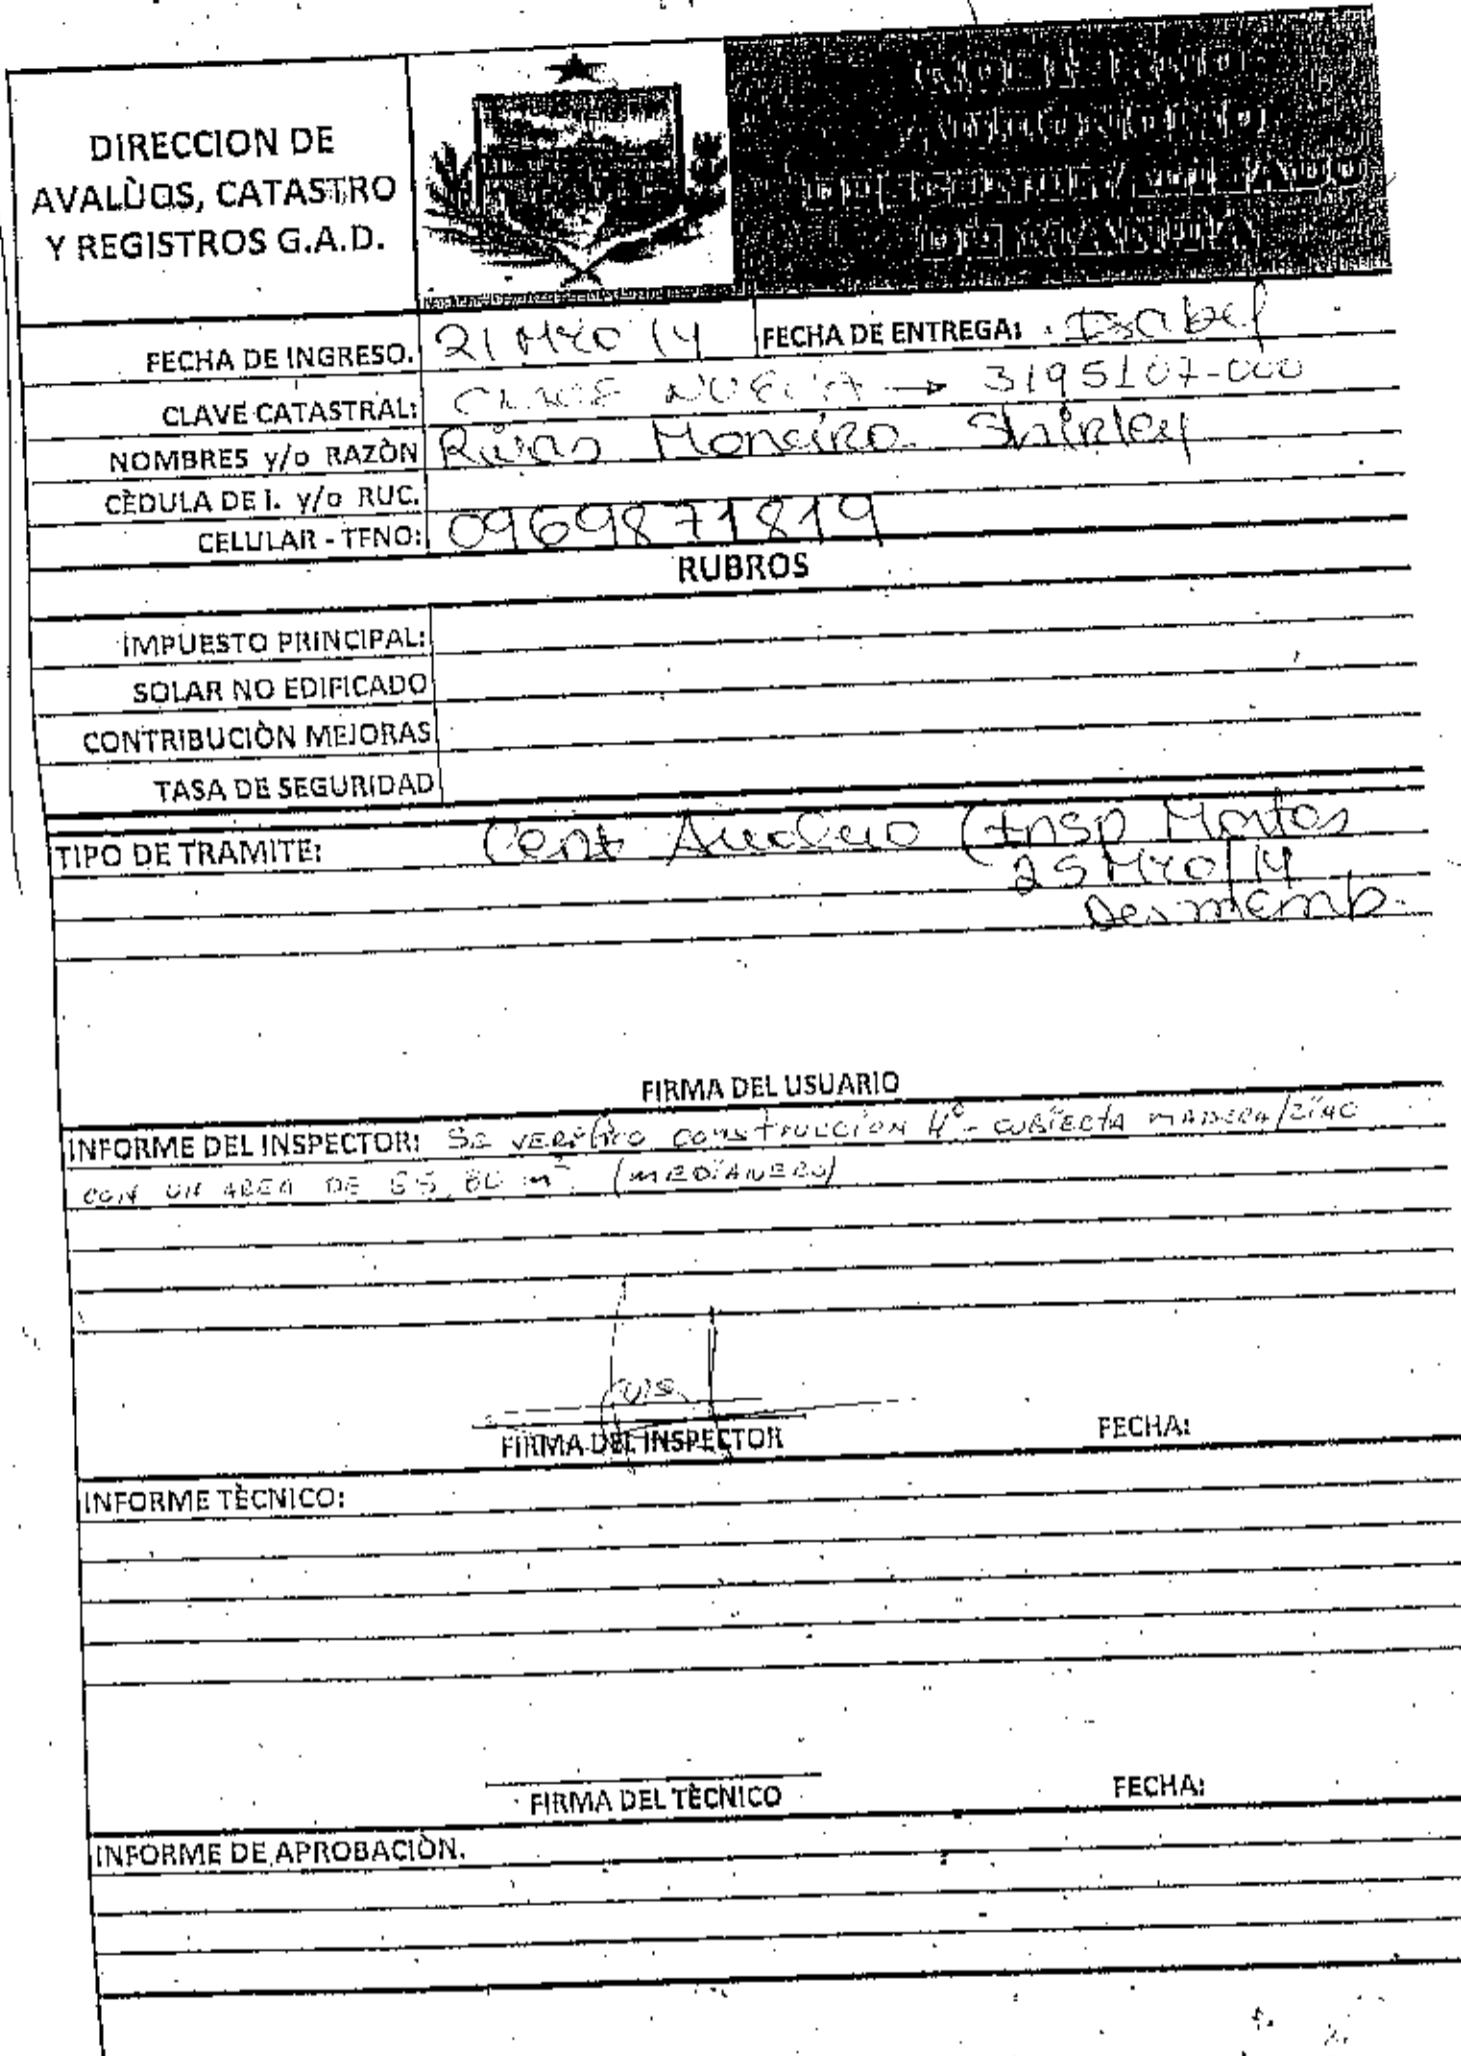 DIRECCION DE
AVALÙOS, CATASTRO
Y REGISTROS G.A.D.
GOBIERNO
AUTONOMO
DESCENTRALIZADO
DE MANTA
FECHA DE INGRESO. 21 Mzo 14 FECHA DE ENTREGA: Isabel
CLAVE CATASTRAL: CLAVE NUEVA → 3195107-000
NOMBRES y/o RAZÒN Rivas Moreira Shirley
CÈDULA DE I. y/o RUC.
CELULAR - TFNO: 0969871819
RUBROS
IMPUESTO PRINCIPAL:
SOLAR NO EDIFICADO
CONTRIBUCIÒN MEJORAS
TASA DE SEGURIDAD
TIPO DE TRAMITE: Cert Avaluo (Insp Martes
25 Mzo/14
Desmemb.
FIRMA DEL USUARIO
INFORME DEL INSPECTOR: SE VERIFICO CONSTRUCCION 4° - CUBIECTA MADERA/ZINC
CON UN AREA DE m² (MEDIANERO)
FIRMA DEL INSPECTOR FECHA:
INFORME TÈCNICO:
FIRMA DEL TÈCNICO FECHA:
INFORME DE APROBACIÒN.